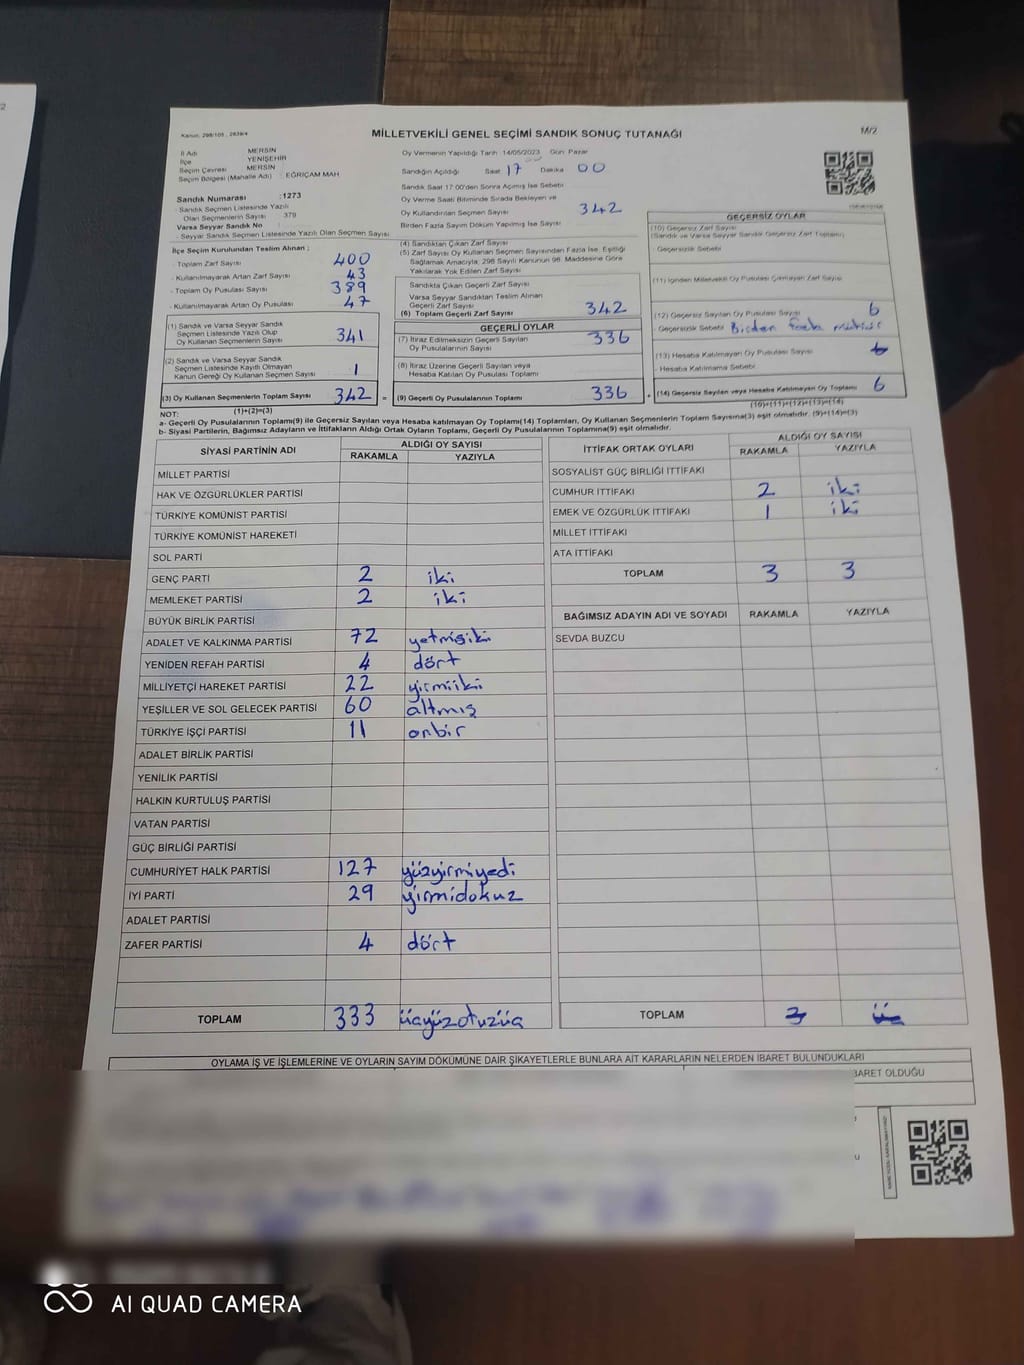 Kanun, 298/105 , 2839/4
MİLLETVEKİLİ GENEL SEÇİMİ SANDIK SONUÇ TUTANAĞI
M/2
İl Adı MERSİN
İlçe YENİŞEHİR
Seçim Çevresi MERSİN
Seçim Bölgesi (Mahalle Adı) : EĞRİÇAM MAH
Sandık Numarası :1273
- Sandık Seçmen Listesinde Yazılı
Olan Seçmenlerin Sayısı : 379
Varsa Seyyar Sandık No
- Seyyar Sandık Seçmen Listesinde Yazılı Olan Seçmen Sayısı
Oy Vermenin Yapıldığı Tarih :14/05/2023 Gün: Pazar
Sandığın Açıldığı Saat 17 Dakika 00
Sandık Saat 17:00'den Sonra Açılmış İse Sebebi
Oy Verme Saati Bitiminde Sırada Bekleyen ve
Oy Kullandırılan Seçmen Sayısı 342
Birden Fazla Sayım Döküm Yapılmış İse Sayısı
İlçe Seçim Kurulundan Teslim Alınan ;
- Toplam Zarf Sayısı 400
- Kullanılmayarak Artan Zarf Sayısı 43
- Toplam Oy Pusulası Sayısı 389
- Kullanılmayarak Artan Oy Pusulası 47
(1) Sandık ve Varsa Seyyar Sandık
Seçmen Listesinde Yazılı Olup
Oy Kullanan Seçmenlerin Sayısı 341
(2) Sandık ve Varsa Seyyar Sandık
Seçmen Listesinde Kayıtlı Olmayan
Kanun Gereği Oy Kullanan Seçmen Sayısı 1
(3) Oy Kullanan Seçmenlerin Toplam Sayısı 342 =
(1)+(2)=(3)
(4) Sandıktan Çıkan Zarf Sayısı
(5) Zarf Sayısı Oy Kullanan Seçmen Sayısından Fazla İse, Eşitliği
Sağlamak Amacıyla, 298 Sayılı Kanunun 98. Maddesine Göre
Yakılarak Yok Edilen Zarf Sayısı
Sandıkta Çıkan Geçerli Zarf Sayısı
Varsa Seyyar Sandıktan Teslim Alınan
Geçerli Zarf Sayısı
(6) Toplam Geçerli Zarf Sayısı 342
GEÇERLİ OYLAR
(7) İtiraz Edilmeksizin Geçerli Sayılan
Oy Pusulalarının Sayısı 336
(8) İtiraz Üzerine Geçerli Sayılan veya
Hesaba Katılan Oy Pusulası Toplamı
(9) Geçerli Oy Pusulalarının Toplamı 336 +
GEÇERSİZ OYLAR
(10) Geçersiz Zarf Sayısı
(Sandık ve Varsa Seyyar Sandık Geçersiz Zarf Toplamı)
Geçersizlik Sebebi
(11) İçinden Milletvekili Oy Pusulası Çıkmayan Zarf Sayısı
(12) Geçersiz Sayılan Oy Pusulası Sayısı 6
- Geçersizlik Sebebi Birden fazla mühür
(13) Hesaba Katılmayan Oy Pusulası Sayısı
- Hesaba Katılmama Sebebi
(14) Geçersiz Sayılan veya Hesaba Katılmayan Oy Toplamı 6
(10)+(11)+(12)+(13)=(14)
NOT:
a- Geçerli Oy Pusulalarının Toplamı(9) ile Geçersiz Sayılan veya Hesaba katılmayan Oy Toplamı(14) Toplamları, Oy Kullanan Seçmenlerin Toplam Sayısına(3) eşit olmalıdır. (9)+(14)=(3)
b- Siyasi Partilerin, Bağımsız Adayların ve İttifakların Aldığı Ortak Oyların Toplamı, Geçerli Oy Pusulalarının Toplamına(9) eşit olmalıdır.
SİYASİ PARTİNİN ADI ALDIĞI OY SAYISI
RAKAMLA YAZIYLA
MİLLET PARTİSİ
HAK VE ÖZGÜRLÜKLER PARTİSİ
TÜRKİYE KOMÜNİST PARTİSİ
TÜRKİYE KOMÜNİST HAREKETİ
SOL PARTİ
GENÇ PARTİ 2 iki
MEMLEKET PARTİSİ 2 iki
BÜYÜK BİRLİK PARTİSİ
ADALET VE KALKINMA PARTİSİ 72 yetmişiki
YENİDEN REFAH PARTİSİ 4 dört
MİLLİYETÇİ HAREKET PARTİSİ 22 yirmiiki
YEŞİLLER VE SOL GELECEK PARTİSİ 60 altmış
TÜRKİYE İŞÇİ PARTİSİ 11 onbir
ADALET BİRLİK PARTİSİ
YENİLİK PARTİSİ
HALKIN KURTULUŞ PARTİSİ
VATAN PARTİSİ
GÜÇ BİRLİĞİ PARTİSİ
CUMHURİYET HALK PARTİSİ 127 yüzyirmiyedi
İYİ PARTİ 29 yirmidokuz
ADALET PARTİSİ
ZAFER PARTİSİ 4 dört
TOPLAM 333 üçyüzotuzüç
İTTİFAK ORTAK OYLARI ALDIĞI OY SAYISI
RAKAMLA YAZIYLA
SOSYALİST GÜÇ BİRLİĞİ İTTİFAKI
CUMHUR İTTİFAKI 2 iki
EMEK VE ÖZGÜRLÜK İTTİFAKI 1 iki
MİLLET İTTİFAKI
ATA İTTİFAKI
TOPLAM 3 3
BAĞIMSIZ ADAYIN ADI VE SOYADI RAKAMLA YAZIYLA
SEVDA BUZCU
TOPLAM 3 üç
OYLAMA İŞ VE İŞLEMLERİNE VE OYLARIN SAYIM DÖKÜMÜNE DAİR ŞİKAYETLERLE BUNLARA AİT KARARLARIN NELERDEN İBARET BULUNDUKLARI
BARET OLDUĞU
AI QUAD CAMERA